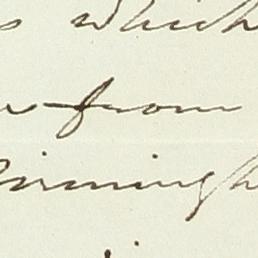 which
from
Birmingh